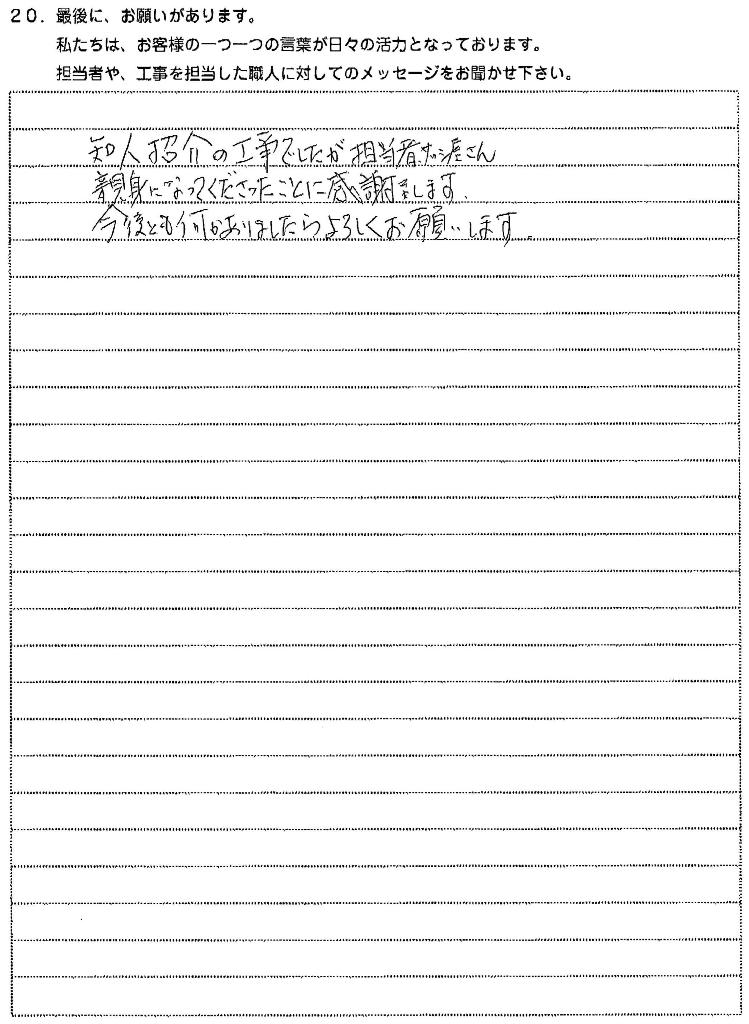 20. 最後に、お願いがあります。
私たちは、お客様の一つ一つの言葉が日々の活力となっております。
担当者や、工事を担当した職人に対してのメッセージをお聞かせ下さい。
知人紹介の工事でしたが担当者、サッシ屋さん
親身になってくださったことに感謝致します。
今後とも何かありましたらよろしくお願いします。